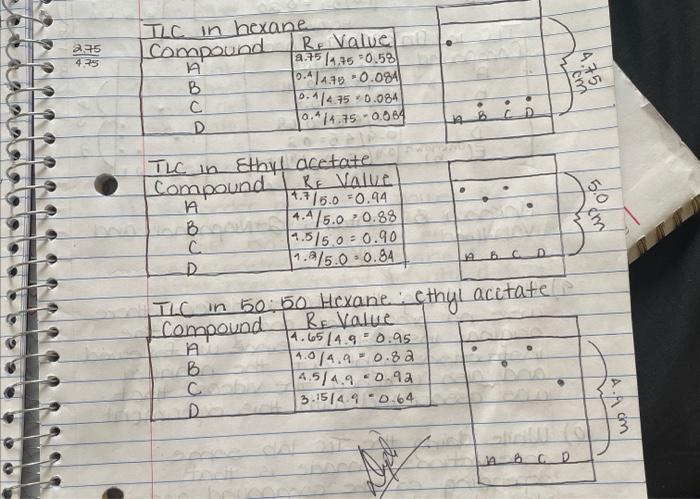 TLC in hexane
Compound Rf Value
2.75
4.75
A 2.75/4.75 = 0.58
B 0.4/4.75 = 0.084
C 0.4/4.75 = 0.084
D 0.4/4.75 = 0.084
A B C D
4.75 cm
TLC in Ethyl acetate
Compound Rf Value
A 4.7/5.0 = 0.94
B 4.4/5.0 = 0.88
C 4.5/5.0 = 0.90
D 4.2/5.0 = 0.84
A B C D
5.0 cm
TLC in 50:50 Hexane: Ethyl acetate
Compound Rf Value
A 4.65/4.9 = 0.95
B 4.0/4.9 = 0.82
C 4.5/4.9 = 0.92
D 3.15/4.9 = 0.64
A B C D
4.9 cm